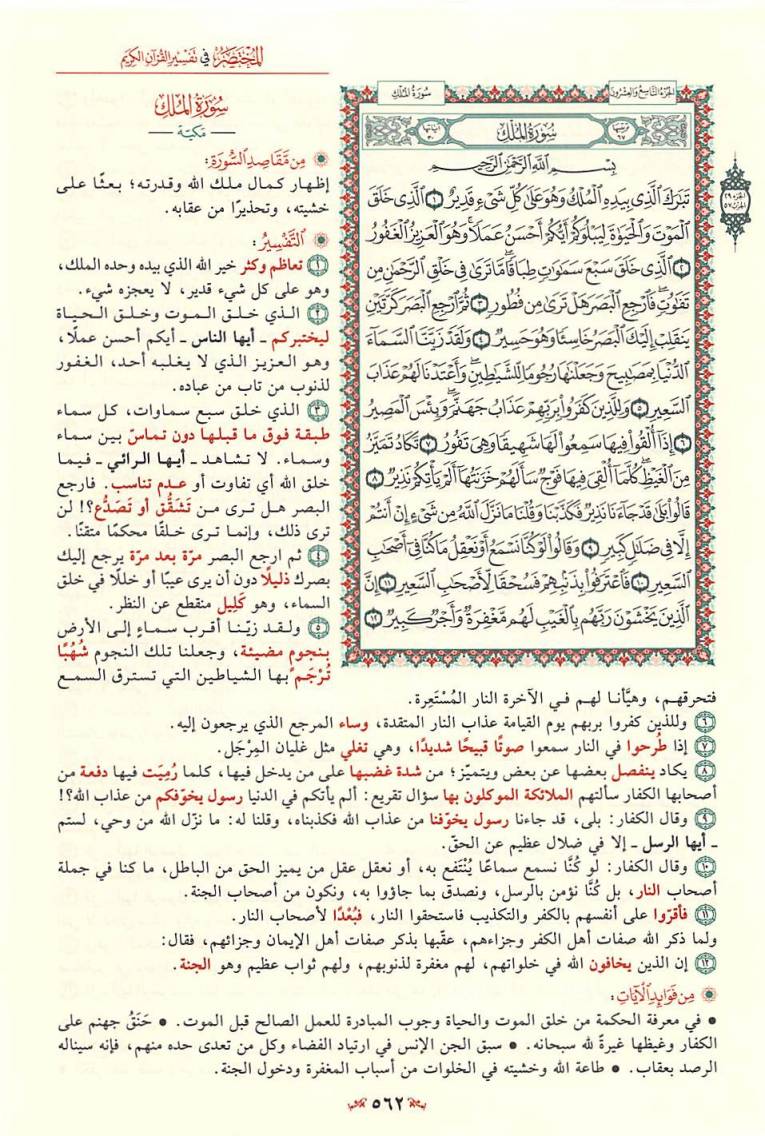 المختصر في تفسير القرآن الكريم
الجزء التاسع والعشرون
سورة الملك
سورة الملك
مكية
ترتيبها ٦٧
سورة الملك
آياتها ٣٠
الجزء ٢٩
الحزب ٥٧
بسم الله الرحمن الرحيم
تَبَٰرَكَ ٱلَّذِي بِيَدِهِ ٱلۡمُلۡكُ وَهُوَ عَلَىٰ كُلِّ شَيۡءٖ قَدِيرٌ ١ ٱلَّذِي خَلَقَ
ٱلۡمَوۡتَ وَٱلۡحَيَوٰةَ لِيَبۡلُوَكُمۡ أَيُّكُمۡ أَحۡسَنُ عَمَلٗاۚ وَهُوَ ٱلۡعَزِيزُ ٱلۡغَفُورُ
٢ ٱلَّذِي خَلَقَ سَبۡعَ سَمَٰوَٰتٖ طِبَاقٗاۖ مَّا تَرَىٰ فِي خَلۡقِ ٱلرَّحۡمَٰنِ مِن
تَفَٰوُتٖۖ فَٱرۡجِعِ ٱلۡبَصَرَ هَلۡ تَرَىٰ مِن فُطُورٖ ٣ ثُمَّ ٱرۡجِعِ ٱلۡبَصَرَ كَرَّتَيۡنِ
يَنقَلِبۡ إِلَيۡكَ ٱلۡبَصَرُ خَاسِئٗا وَهُوَ حَسِيرٞ ٤ وَلَقَدۡ زَيَّنَّا ٱلسَّمَآءَ
ٱلدُّنۡيَا بِمَصَٰبِيحَ وَجَعَلۡنَٰهَا رُجُومٗا لِّلشَّيَٰطِينِۖ وَأَعۡتَدۡنَا لَهُمۡ عَذَابَ
ٱلسَّعِيرِ ٥ وَلِلَّذِينَ كَفَرُواْ بِرَبِّهِمۡ عَذَابُ جَهَنَّمَۖ وَبِئۡسَ ٱلۡمَصِيرُ
٦ إِذَآ أُلۡقُواْ فِيهَا سَمِعُواْ لَهَا شَهِيقٗا وَهِيَ تَفُورُ ٧ تَكَادُ تَمَيَّزُ
مِنَ ٱلۡغَيۡظِۖ كُلَّمَآ أُلۡقِيَ فِيهَا فَوۡجٞ سَأَلَهُمۡ خَزَنَتُهَآ أَلَمۡ يَأۡتِكُمۡ نَذِيرٞ ٨
قَالُواْ بَلَىٰ قَدۡ جَآءَنَا نَذِيرٞ فَكَذَّبۡنَا وَقُلۡنَا مَا نَزَّلَ ٱللَّهُ مِن شَيۡءٍ إِنۡ أَنتُمۡ
إِلَّا فِي ضَلَٰلٖ كَبِيرٖ ٩ وَقَالُواْ لَوۡ كُنَّا نَسۡمَعُ أَوۡ نَعۡقِلُ مَا كُنَّا فِيٓ أَصۡحَٰبِ
ٱلسَّعِيرِ ١٠ فَٱعۡتَرَفُواْ بِذَنۢبِهِمۡ فَسُحۡقٗا لِّأَصۡحَٰبِ ٱلسَّعِيرِ ١١ إِنَّ
ٱلَّذِينَ يَخۡشَوۡنَ رَبَّهُم بِٱلۡغَيۡبِ لَهُم مَّغۡفِرَةٞ وَأَجۡرٞ كَبِيرٞ ١٢
من مقاصد السورة:
إظهار كمال ملك الله وقدرته؛ بعثًا على
خشيته، وتحذيرًا من عقابه.
التفسير:
١ تعاظم وكثر خير الله الذي بيده وحده الملك،
وهو على كل شيء قدير، لا يعجزه شيء.
٢ الذي خلق الموت وخلق الحياة
ليختبركم ـ أيها الناس ـ أيكم أحسن عملًا،
وهو العزيز الذي لا يغلبه أحد، الغفور
لذنوب من تاب من عباده.
٣ الذي خلق سبع سماوات، كل سماء
طبقة فوق ما قبلها دون تماسّ بين سماء
وسماء. لا تشاهد ـ أيها الرائي ـ فيما
خلق الله أي تفاوت أو عدم تناسب. فارجع
البصر هل ترى من تَشَقُّق أو تَصَدُّع؟! لن
ترى ذلك، وإنما ترى خلقًا محكمًا متقنًا.
٤ ثم ارجع البصر مرّة بعد مرّة يرجع إليك
بصرك ذليلًا دون أن يرى عيبًا أو خللًا في خلق
السماء، وهو كَلِيل منقطع عن النظر.
٥ ولقد زيّنا أقرب سماءٍ إلى الأرض
بنجوم مضيئة، وجعلنا تلك النجوم شُهُبًا
تُرْجَم بها الشياطين التي تسترق السمع
فتحرقهم، وهيَّأنا لهم في الآخرة النار المُسْتَعِرة.
٦ وللذين كفروا بربهم يوم القيامة عذاب النار المتقدة، وساء المرجع الذي يرجعون إليه.
٧ إذا طُرِحوا في النار سمعوا صوتًا قبيحًا شديدًا، وهي تغلي مثل غليان المِرْجَل.
٨ يكاد ينفصل بعضها عن بعض ويتميّز؛ من شدة غضبها على من يدخل فيها، كلما رُمِيَت فيها دفعة من
أصحابها الكفار سألتهم الملائكة الموكلون بها سؤال تقريع: ألم يأتكم في الدنيا رسول يخوّفكم من عذاب الله؟!
٩ وقال الكفار: بلى، قد جاءنا رسول يخوّفنا من عذاب الله فكذبناه، وقلنا له: ما نزّل الله من وحي، لستم
ـ أيها الرسل ـ إلا في ضلال عظيم عن الحقّ.
١٠ وقال الكفار: لو كُنَّا نسمع سماعًا يُنْتَفع به، أو نعقل عقل من يميز الحق من الباطل، ما كنا في جملة
أصحاب النار، بل كُنَّا نؤمن بالرسل، ونصدق بما جاؤوا به، ونكون من أصحاب الجنة.
١١ فأقرّوا على أنفسهم بالكفر والتكذيب فاستحقوا النار، فبُعْدًا لأصحاب النار.
ولما ذكر الله صفات أهل الكفر وجزاءهم، عقّبها بذكر صفات أهل الإيمان وجزائهم، فقال:
١٢ إن الذين يخافون الله في خلواتهم، لهم مغفرة لذنوبهم، ولهم ثواب عظيم وهو الجنة.
من فوائد الآيات:
• في معرفة الحكمة من خلق الموت والحياة وجوب المبادرة للعمل الصالح قبل الموت. • حَنَقُ جهنم على
الكفار وغيظها غيرةً لله سبحانه. • سبق الجن الإنس في ارتياد الفضاء وكل من تعدى حده منهم، فإنه سيناله
الرصد بعقاب. • طاعة الله وخشيته في الخلوات من أسباب المغفرة ودخول الجنة.
٥٦٢